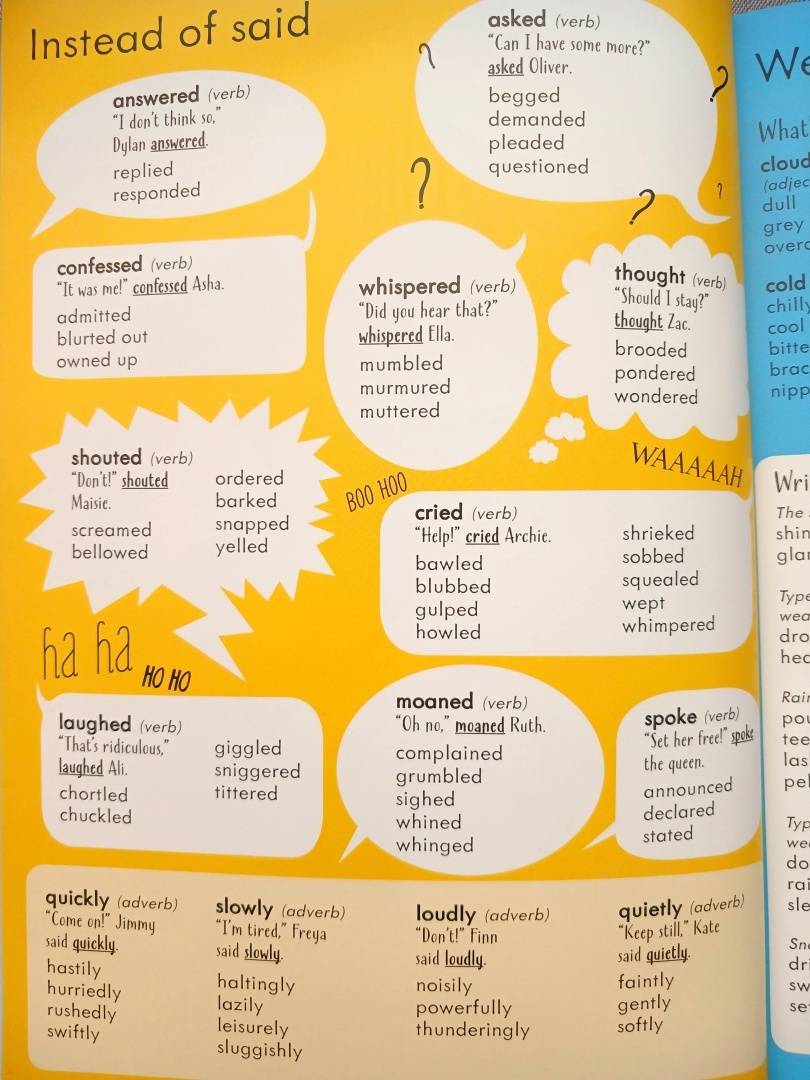 Instead of said
answered (verb)
"I don't think so,"
Dylan answered.
replied
responded
asked (verb)
"Can I have some more?"
asked Oliver.
begged
demanded
pleaded
questioned
?
?
?
?
?
confessed (verb)
"It was me!" confessed Asha.
admitted
blurted out
owned up
whispered (verb)
"Did you hear that?"
whispered Ella.
mumbled
murmured
muttered
thought (verb)
"Should I stay?"
thought Zac.
brooded
pondered
wondered
shouted (verb)
"Don't!" shouted
Maisie.
screamed
bellowed
ordered
barked
snapped
yelled
BOO HOO
WAAAAAH
cried (verb)
"Help!" cried Archie.
bawled
blubbed
gulped
howled
shrieked
sobbed
squealed
wept
whimpered
ha ha
HO HO
laughed (verb)
"That's ridiculous,"
laughed Ali.
chortled
chuckled
giggled
sniggered
tittered
moaned (verb)
"Oh no," moaned Ruth.
complained
grumbled
sighed
whined
whinged
spoke (verb)
"Set her free!" spoke
the queen.
announced
declared
stated
quickly (adverb)
"Come on!" Jimmy
said quickly.
hastily
hurriedly
rushedly
swiftly
slowly (adverb)
"I'm tired," Freya
said slowly.
haltingly
lazily
leisurely
sluggishly
loudly (adverb)
"Don't!" Finn
said loudly.
noisily
powerfully
thunderingly
quietly (adverb)
"Keep still," Kate
said quietly.
faintly
gently
softly
What
dull
grey
cold
cool
The